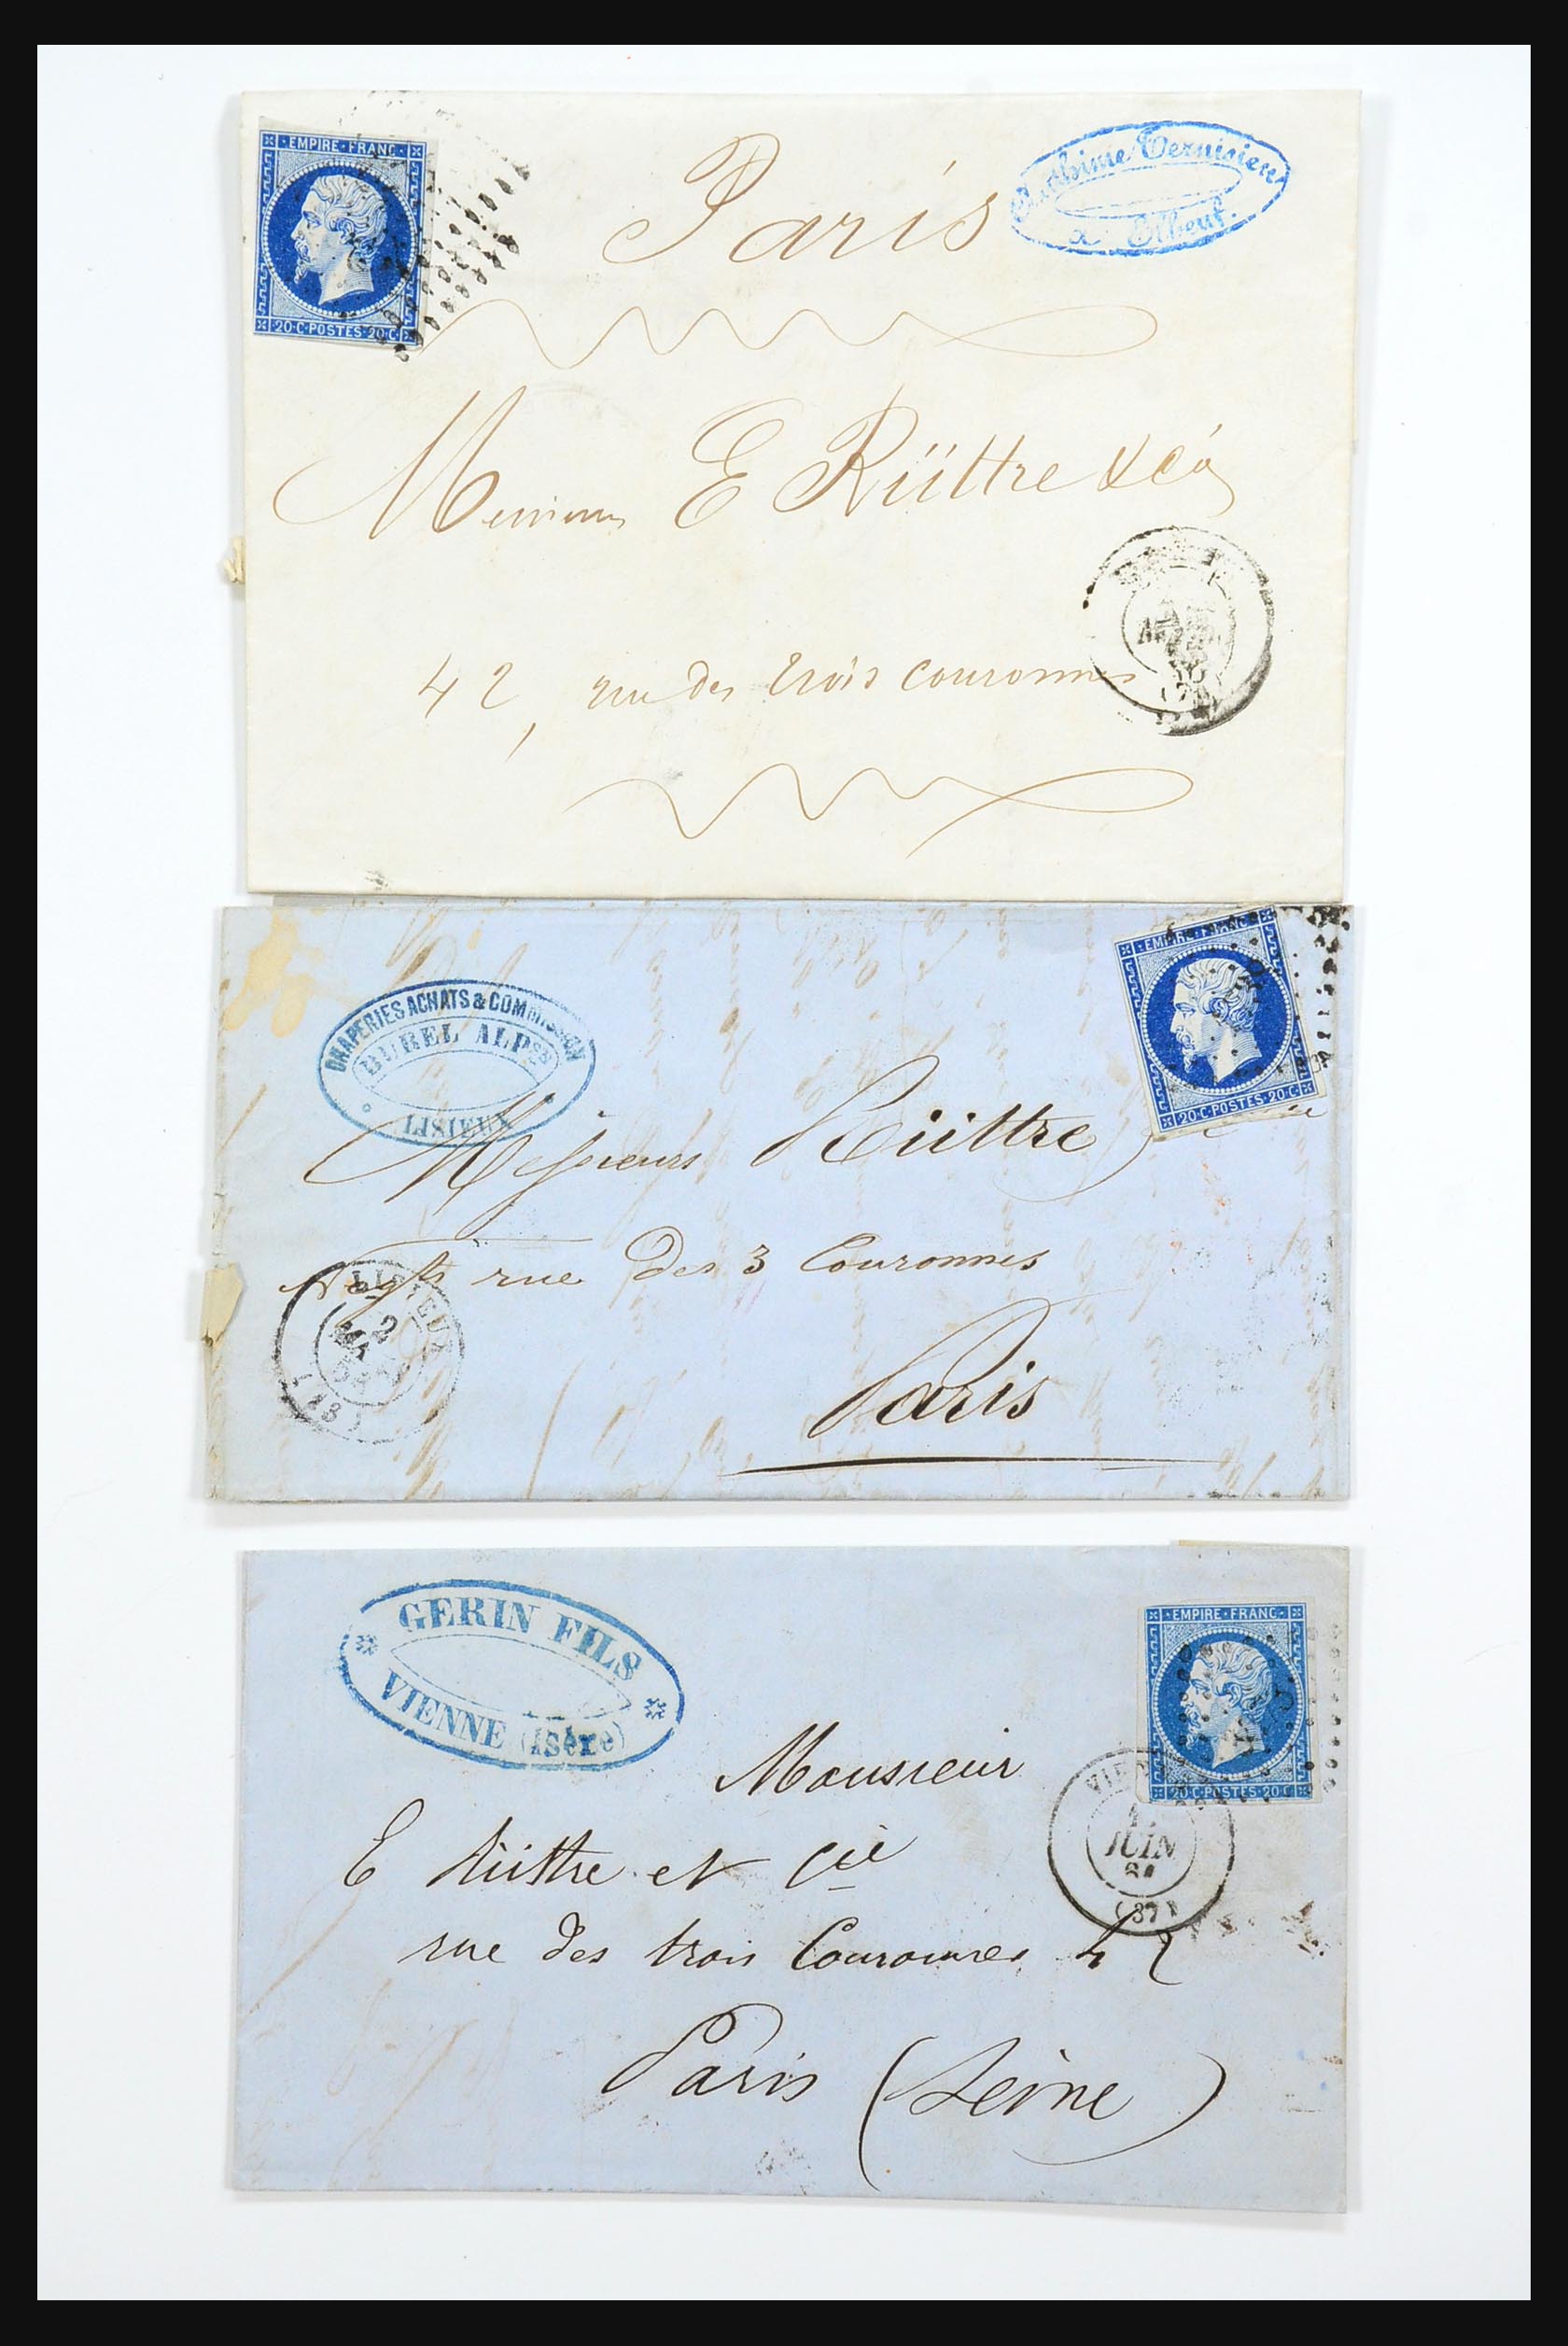 EMPIRE FRANC
20 C POSTES 20 C
Paris
Vernisien
à Elbeuf.
E Rüttre & Cie
(74)
42, rue des trois couronnes
EMPIRE FRANC
20 C POSTES 20 C
DRAPERIES ACHATS & COMMISSION
BUREL ALPse
LISIEUX
Messieurs Rüttre
rue des 3 Couronnes
LISIEUX
2
(13)
Paris
GERIN FILS
VIENNE (Isère)
EMPIRE FRANC
20 C POSTES 20 C
Monsieur
E Rüttre et Cie
JUIN
(37)
rue des trois Couronnes 42
Paris (Seine)